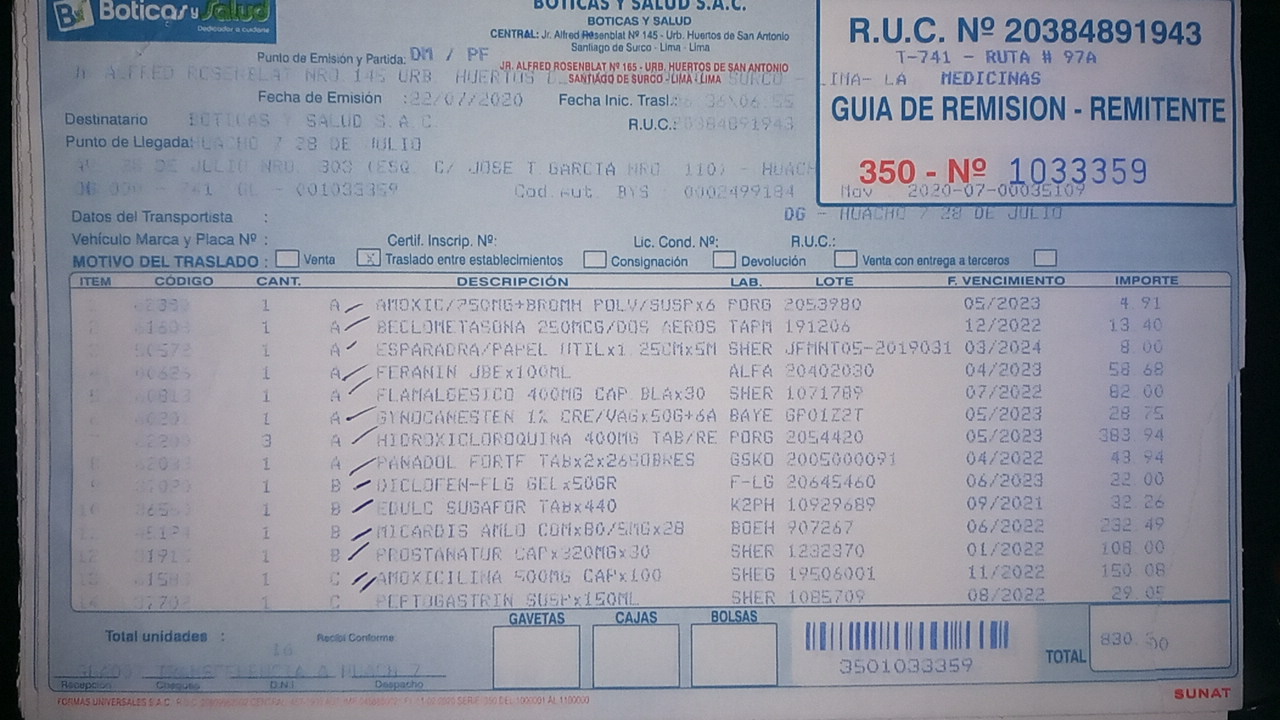 Boticas y Salud
Dedicados a cuidarte
BOTICAS Y SALUD S.A.C.
BOTICAS Y SALUD
CENTRAL: Jr. Alfred Rosenblat Nº 145, Urb. Huertos de San Antonio
Santiago de Surco - Lima - Lima
JR. ALFRED ROSENBLAT Nº 165 - URB. HUERTOS DE SAN ANTONIO
SANTIAGO DE SURCO - LIMA - LIMA
R.U.C. Nº 20384891943
T-741 - RUTA # 97A
LIMA- LA MEDICINAS
GUIA DE REMISION - REMITENTE
350 - Nº 1033359
Mov 2020-07-00035109
Punto de Emisión y Partida: DM / PF
Jr ALFRED ROSENBLAT NRO 145 URB HUERTOS SURCO -
Fecha de Emisión :22/07/2020 Fecha Inic. Trasl.:
Destinatario BOTICAS Y SALUD S.A.C. R.U.C.: 20384891943
Punto de Llegada: HUACHO 7 28 DE JULIO
AV. 28 DE JULIO NRO. 303 (ESQ. C/ JOSE T GARCIA NRO 110) - HUACH
001033359 Cod.Aut BYS 0002499184
DG - HUACHO 7 28 DE JULIO
Datos del Transportista :
Vehículo Marca y Placa Nº : Certif. Inscrip. Nº: Lic. Cond. Nº: R.U.C.:
MOTIVO DEL TRASLADO : Venta X Traslado entre establecimientos Consignación Devolución Venta con entrega a terceros
ITEM CÓDIGO CANT. DESCRIPCIÓN LAB. LOTE F. VENCIMIENTO IMPORTE
1 A AMOXIC/250MG+BROMH POLV/SUSPx6 PORG 2053980 05/2023 4 91
1 A BECLOMETASONA 250MCG/DOS AEROS TAPM 191206 12/2022 13 40
1 A ESPARADRA/PAPEL UTILx1 25CMx5M SHER JFMNT05-2019031 03/2024 8 00
1 A FERANIN JBEx100ML ALFA 20402030 04/2023 58 68
1 A FLAMALGESICO 400MG CAP BLAx30 SHER 1071789 07/2022 82 00
1 A GYNOCANESTEN 1% CRE/VAGx50G+6A BAYE GP01Z2T 05/2023 28 75
3 A HIDROXICLOROQUINA 400MG TAB/RE PORG 2054420 05/2023 383 94
1 A PANADOL FORTE TABx2x26SOBRES GSKO 2005000091 04/2022 43 94
1 B DICLOFEN-FLG GELx50GR F-LG 20645460 06/2023 22 00
10 1 B EDULC SUGAFOR TABx440 K2PH 10929689 09/2021 32 26
1 B MICARDIS AMLO COMx80/5MGx28 BOEH 907267 06/2022 232 49
12 1 B PROSTANATUR CAPx320MGx30 SHER 1232370 01/2022 108 00
1 C AMOXICILINA 500MG CAPx100 SHEG 19506001 11/2022 150 08
14 1 C PEPTUGASTRIN SUSPx150ML SHER 1085709 08/2022 29 05
Total unidades : 16 Recibí Conforme GAVETAS CAJAS BOLSAS
3501033359
TOTAL 830.30
TRANSFERENCIA A HUACH 7
Recepción Chequeo D.N.I Despacho
SUNAT
FORMAS UNIVERSALES S.A.C.